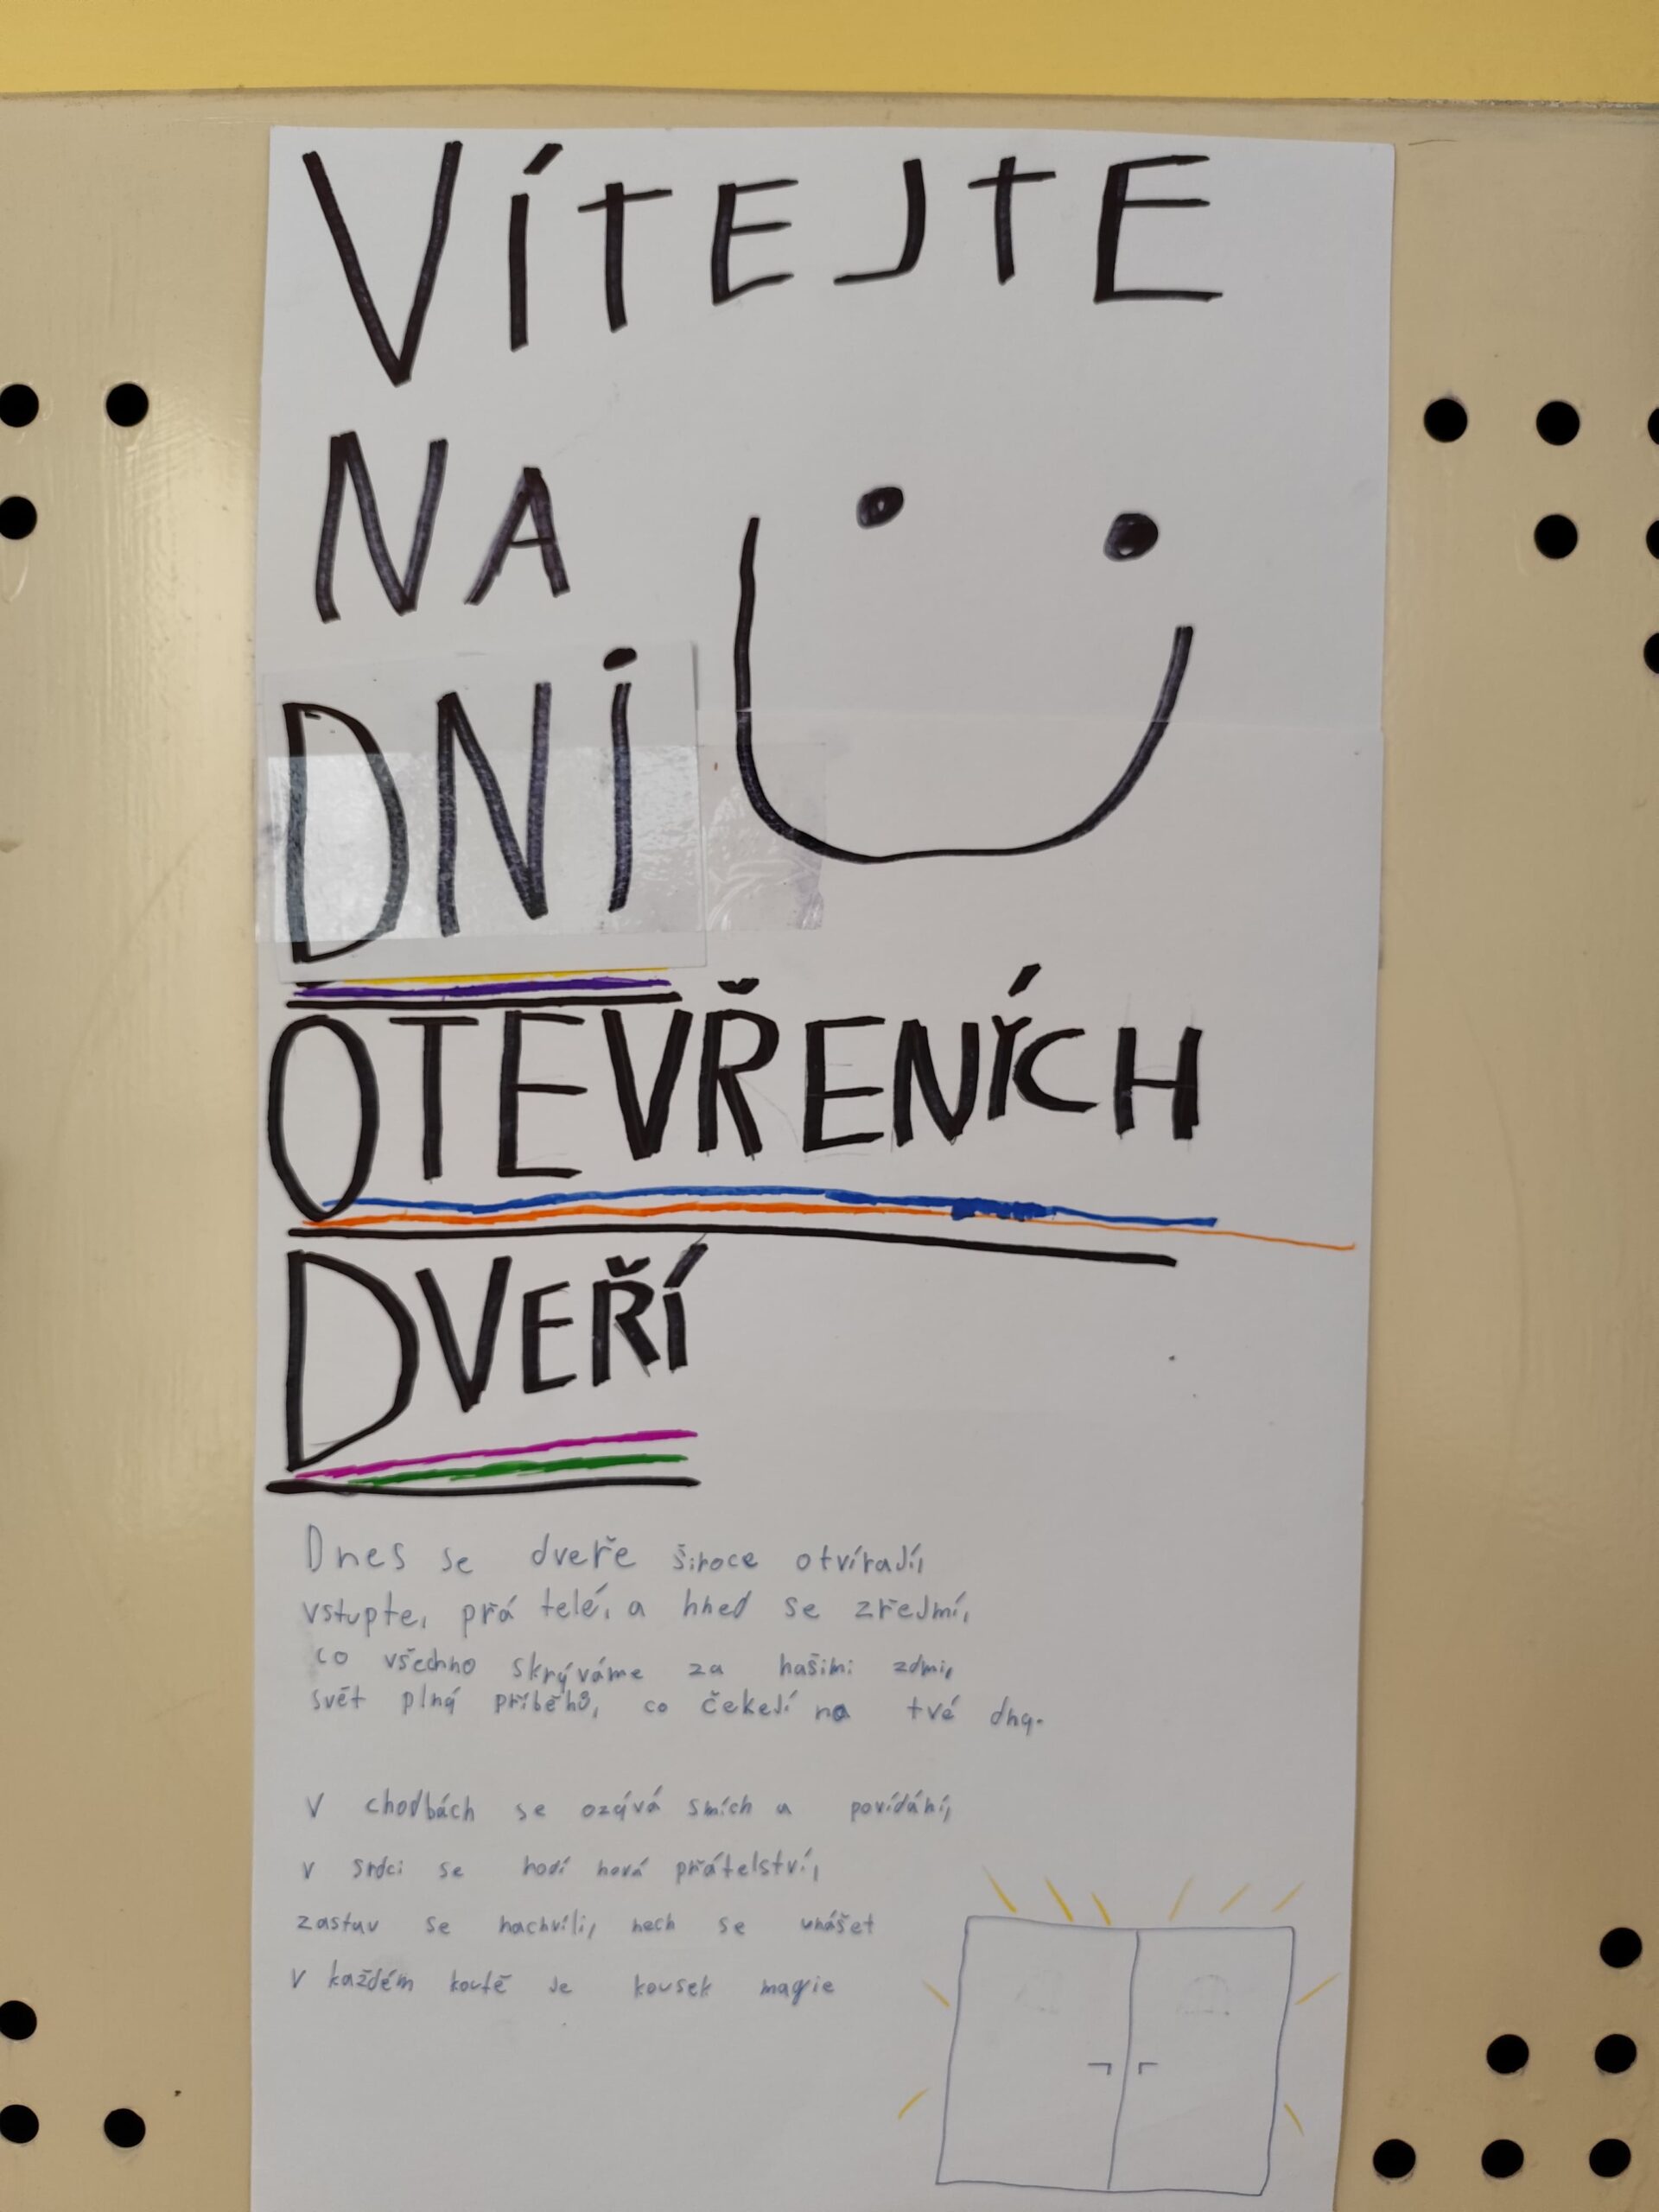 VÍTEJTE
NA
DNI
OTEVŘENÍCH
DVEŘÍ
Dnes se dveře široce otvírají,
vstupte, přátelé, a hned se zřejmí,
co všechno skrýváme za našimi zdmi,
svět plný příběhů, co čekají na tvé dny.
V chodbách se ozývá smích a povídání,
v srdci se hodí nová přátelství,
zastav se nachvíli, nech se unášet
V každém koutě je kousek magie